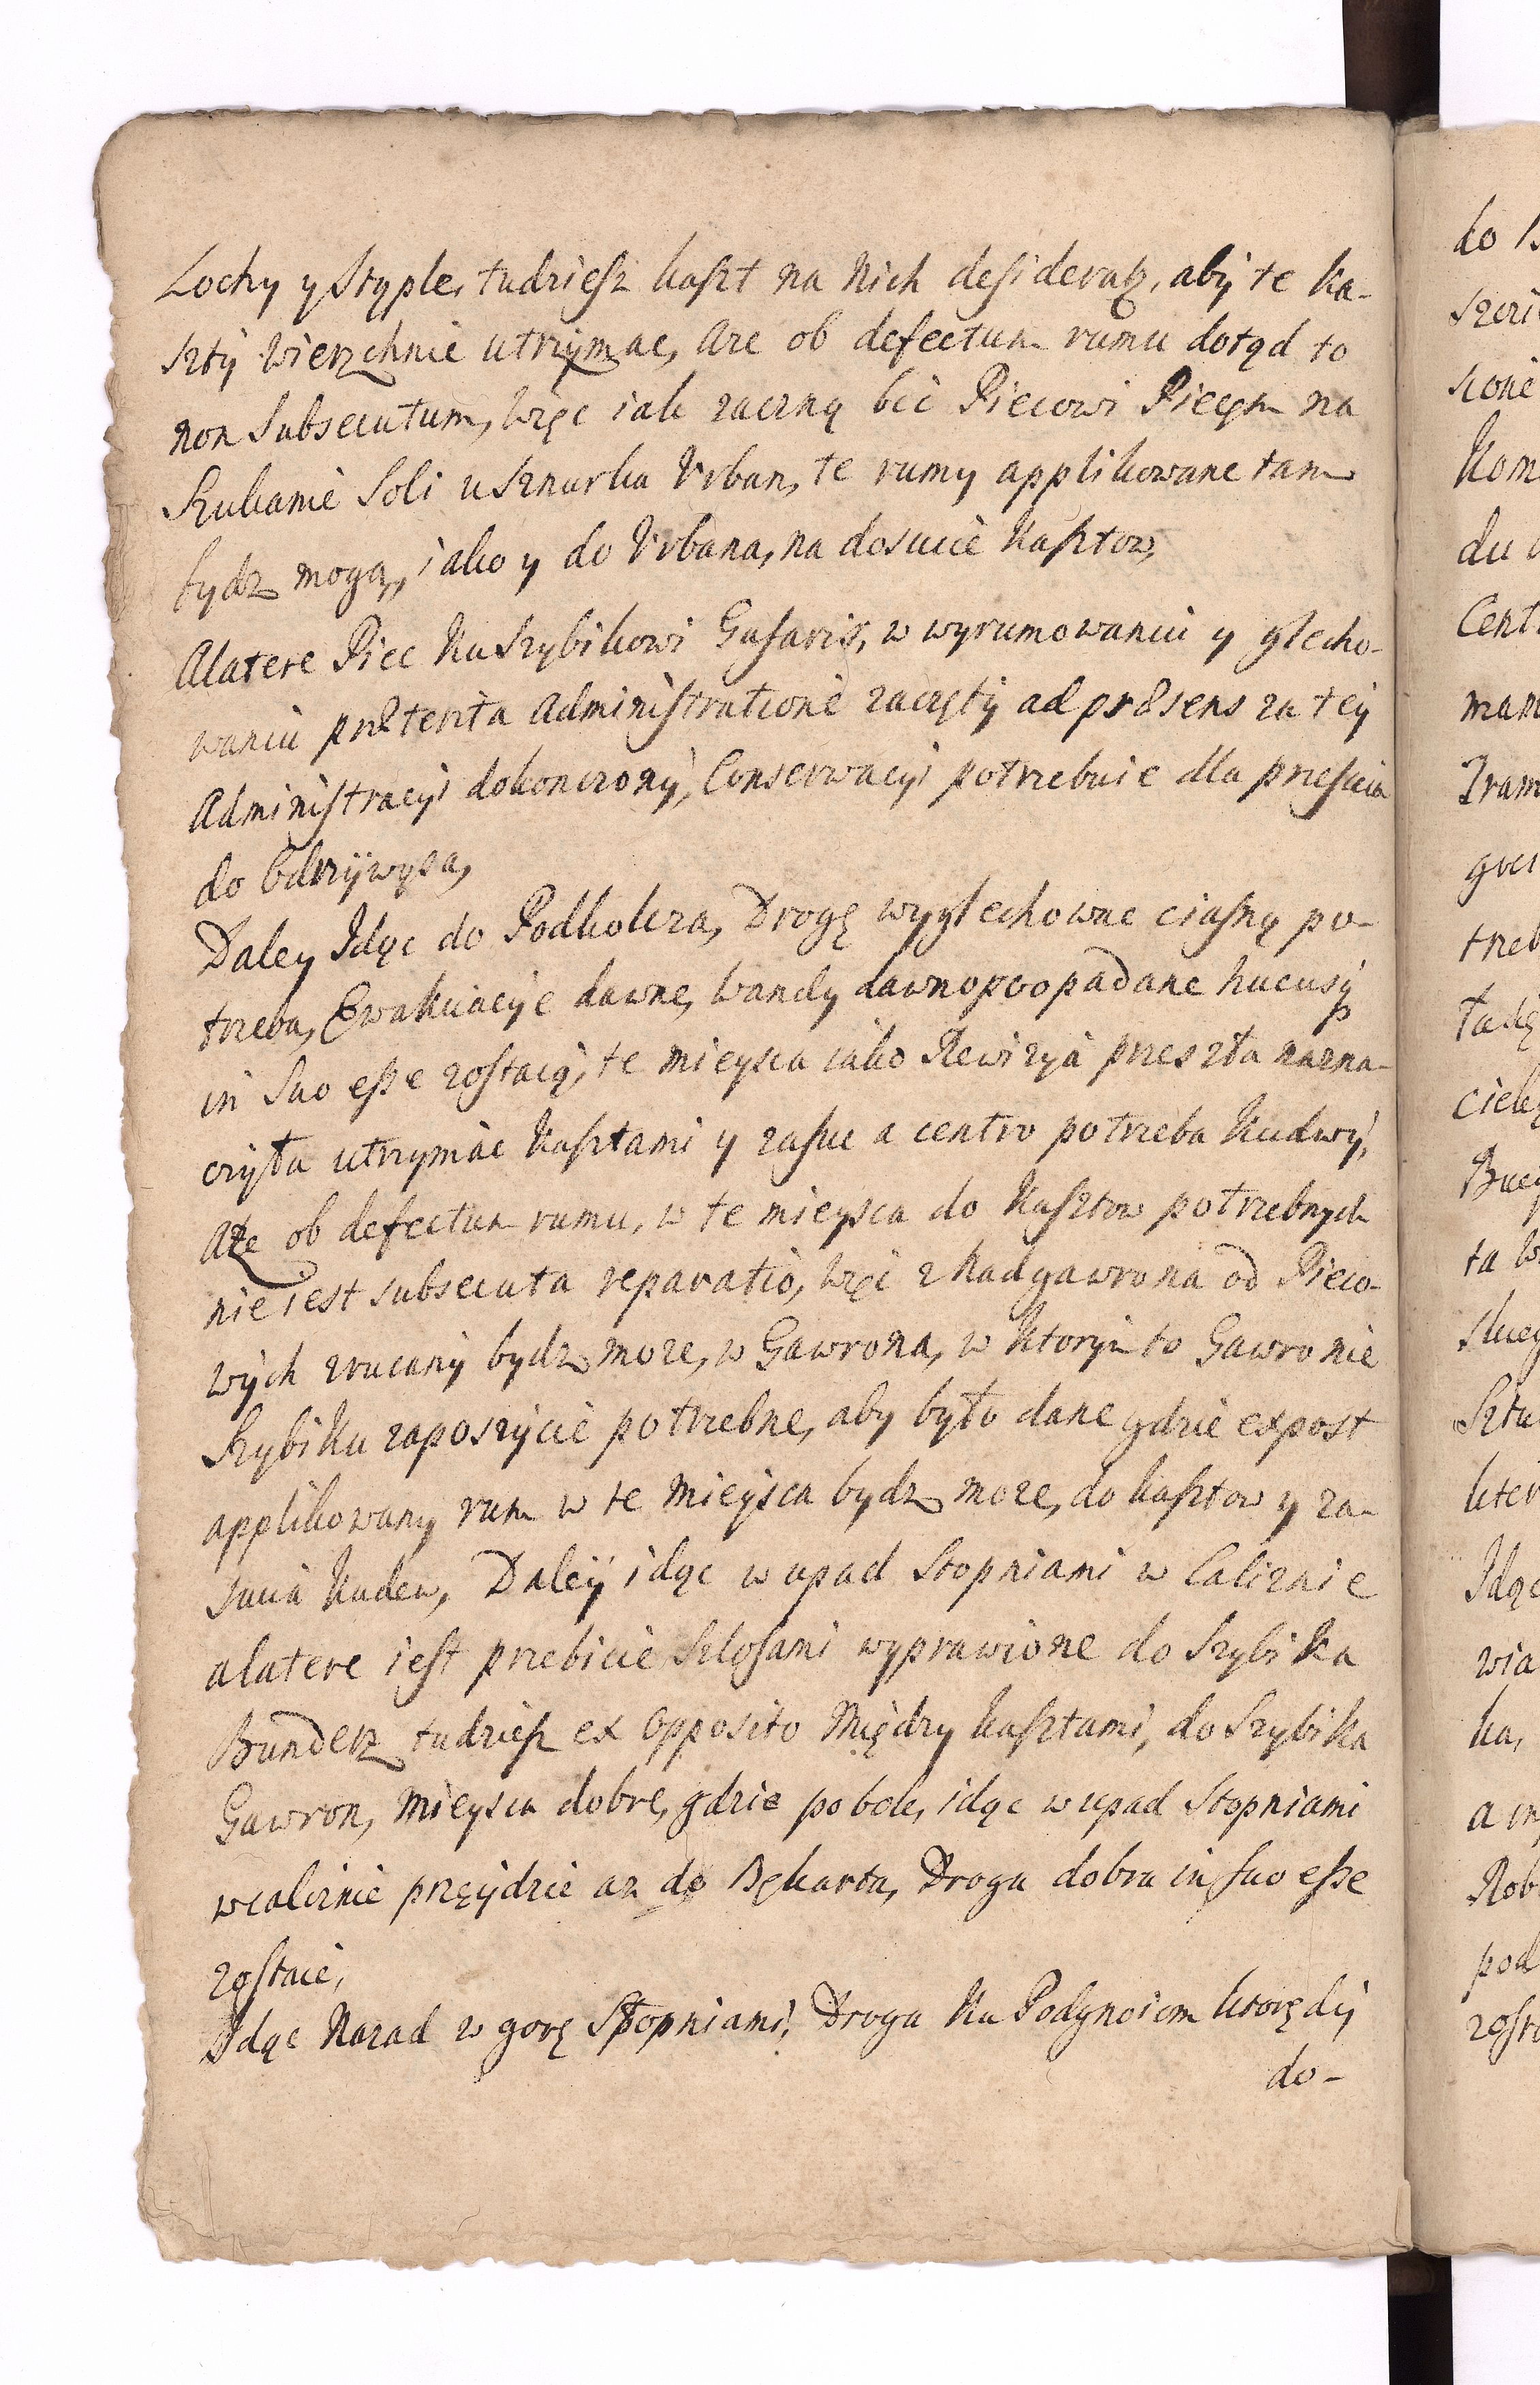 Lochy y Styple, tudziesz kaszt na nich desideratz, abÿ te ka-
sztÿ wierzchnie utrzymac, Aze ob defectum rumu dotąd to
non Subsecutum, Więc iak zaczną bic Piecowi Piecem na
Szukanie Soli u Sznurka Vrban, te rumy applikowane tam
bydz mogą, iako y do Vrbana, na dosucie Kasztow,
Alatere Piec Ku Szybikowi Gusaris, w wyrumowaniu y glecho-
waniu præterita Administratione zaczętÿ ad præsens za teÿ
Administracyi dokonczonÿ, Conserwacyi potrzebuie dla przescia
do
Daley Idąc do Podkolcza, Drogę wyglechowac ciasną po-
trzeba, Ewakuacÿe dawne, Wandy dawno poopadane hucusq
in Suo esse zostaią, te mieysca iako Rewizya przeszła nazna-
czyła utrzymac Kasztami y zasuc a centro potrzeba Kudwÿ,
Aże ob defectum rumu, w te mieysca do Kasztow potrzebnych
nie iest subsecuta reparatio, Więc z Nadgawrona od Pieco-
wÿch zrucanÿ bydz moze, w Gawrona, w ktorym to Gawronie
Szybiku zaposzycie potrzebne, aby było dane gdzie expost
applikowany rum w te mieysca bydz moze, do kasztow y za-
sucia Kudew, Daleÿ idąc w upad Stopniami w Caliznie
alatere iest przebicie Szlosami wyprawione do Szybika
Bunderz tudziesz ex opposito między kasztami, do Szybika
Gawron, mieysca dobre, gdzie pobok, idąc w upad Stopniami
w caliznie przeÿdzie az do Bękarta, Droga dobra in suo esse
zostaie,
Idąc Nazad w gorę Stopniami, Droga Ku Podgnoiem ktorędÿ
do-

do
Kom
du
Cent
Idąc
wia
ka,
Rob
pod